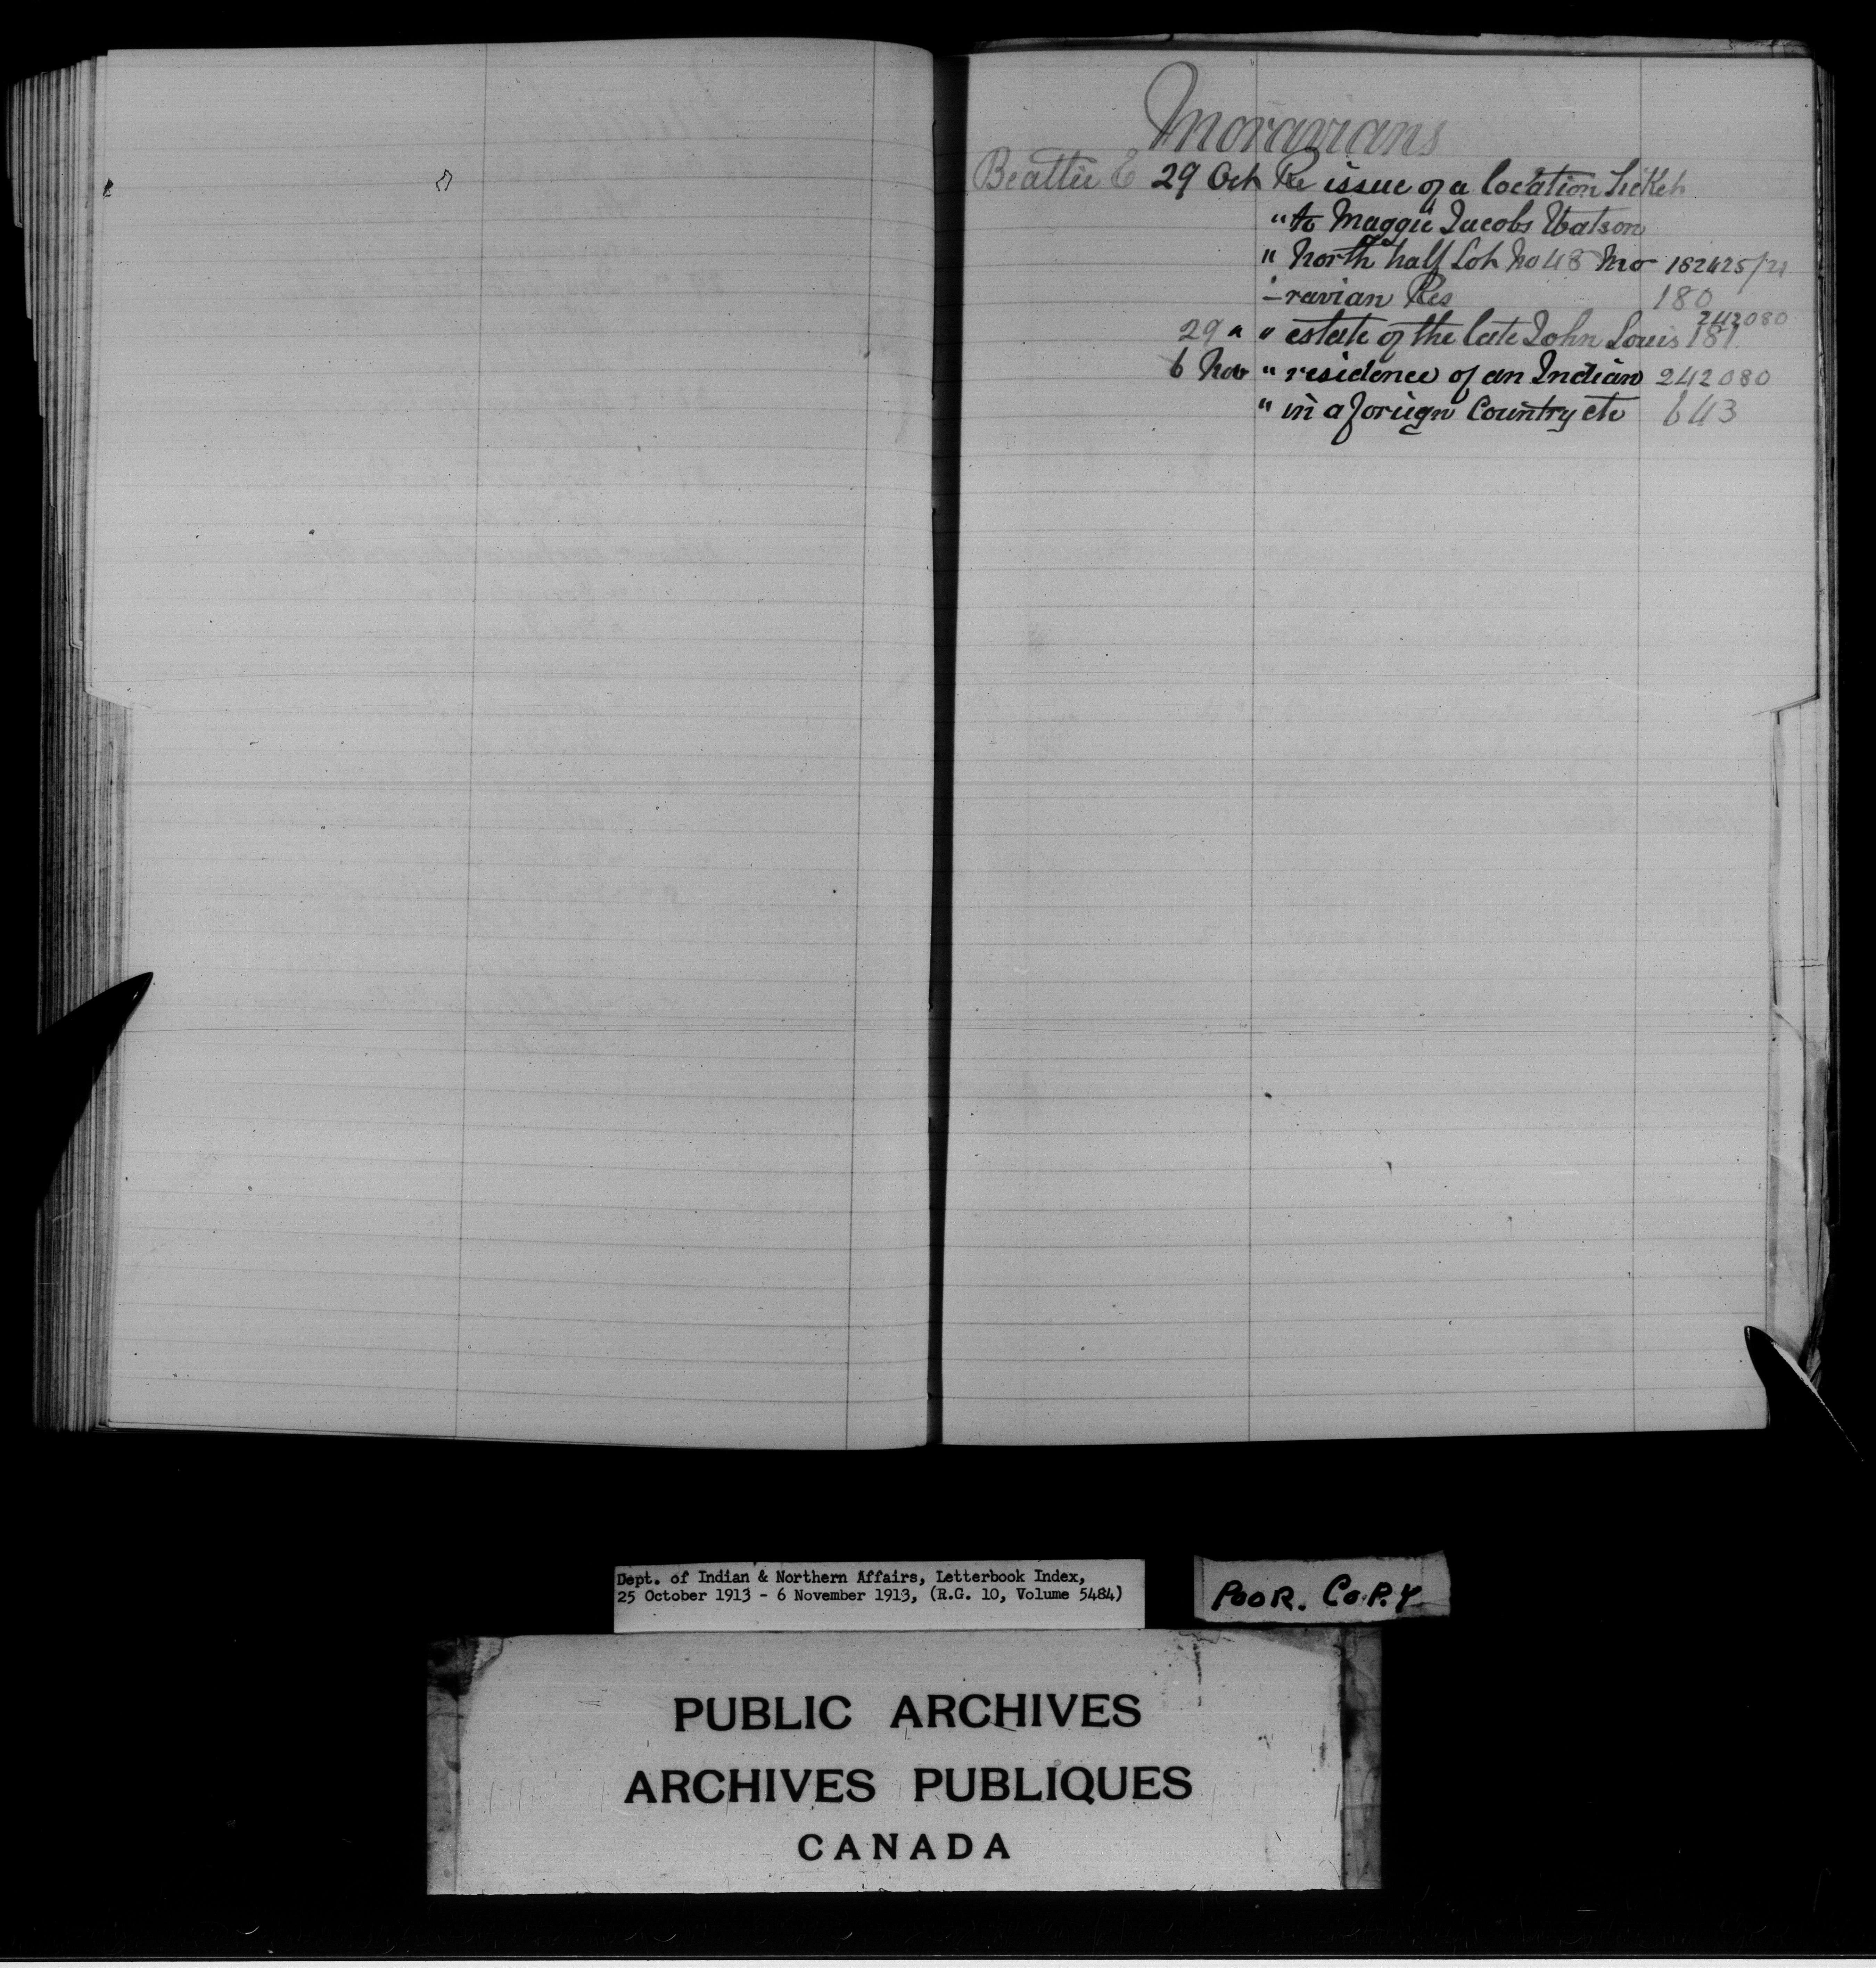 Moravians
Beattie E 29 Oct Re issue of a location ticket
" to Maggie Jacobs Watson
" North half Lot No 48 Mo 182425/21
- ravian Res 180
242080
29 " " estate of the late John Louis 181
6 Nov " residence of an Indian 242080
" in a foriegn Country etc 643
Dept. of Indian & Northern Affairs, Letterbook Index,
25 October 1913 - 6 November 1913, (R.G. 10, Volume 5484)
POOR. COPY
PUBLIC ARCHIVES
ARCHIVES PUBLIQUES
CANADA